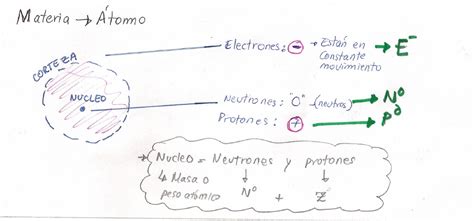 Materia → Átomo
CORTEZA
NUCLEO
Electrones: - → Están en
Constante
movimiento → E⁻
Neutrones: "0" - (neutros) → N⁰
Protones: + → P⁰
→ Nucleo = Neutrones y protones
↳ Masa o
peso atómico N⁰ + Z